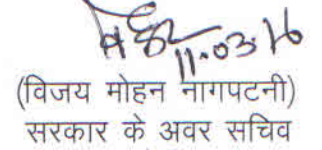 11.03.16
(विजय मोहन नागपटनी)
सरकार के अवर सचिव